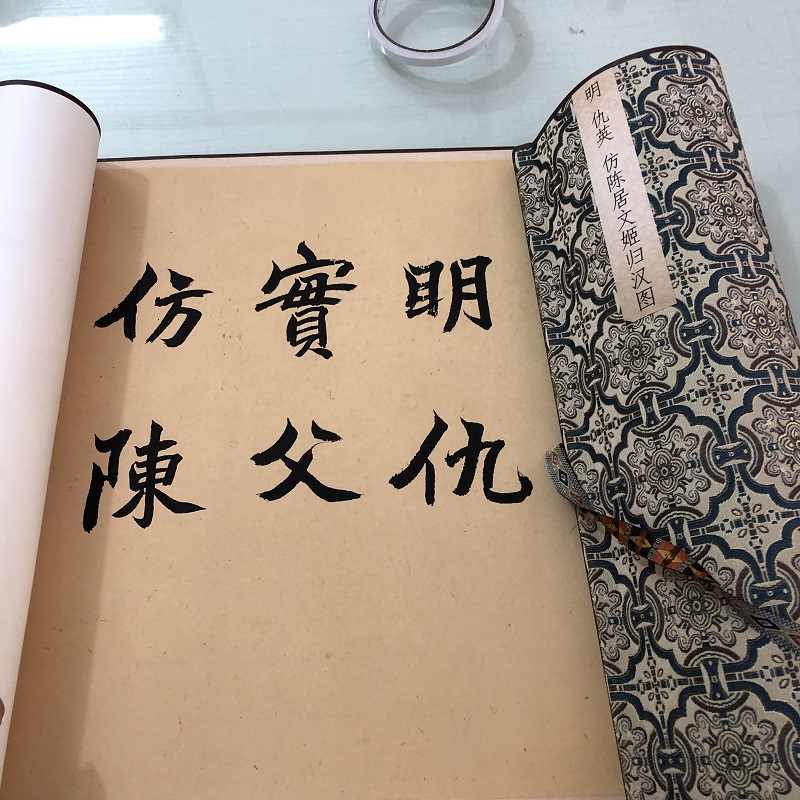 明仇
實父
仿陳
明 仇英 仿陈居文姬归汉图